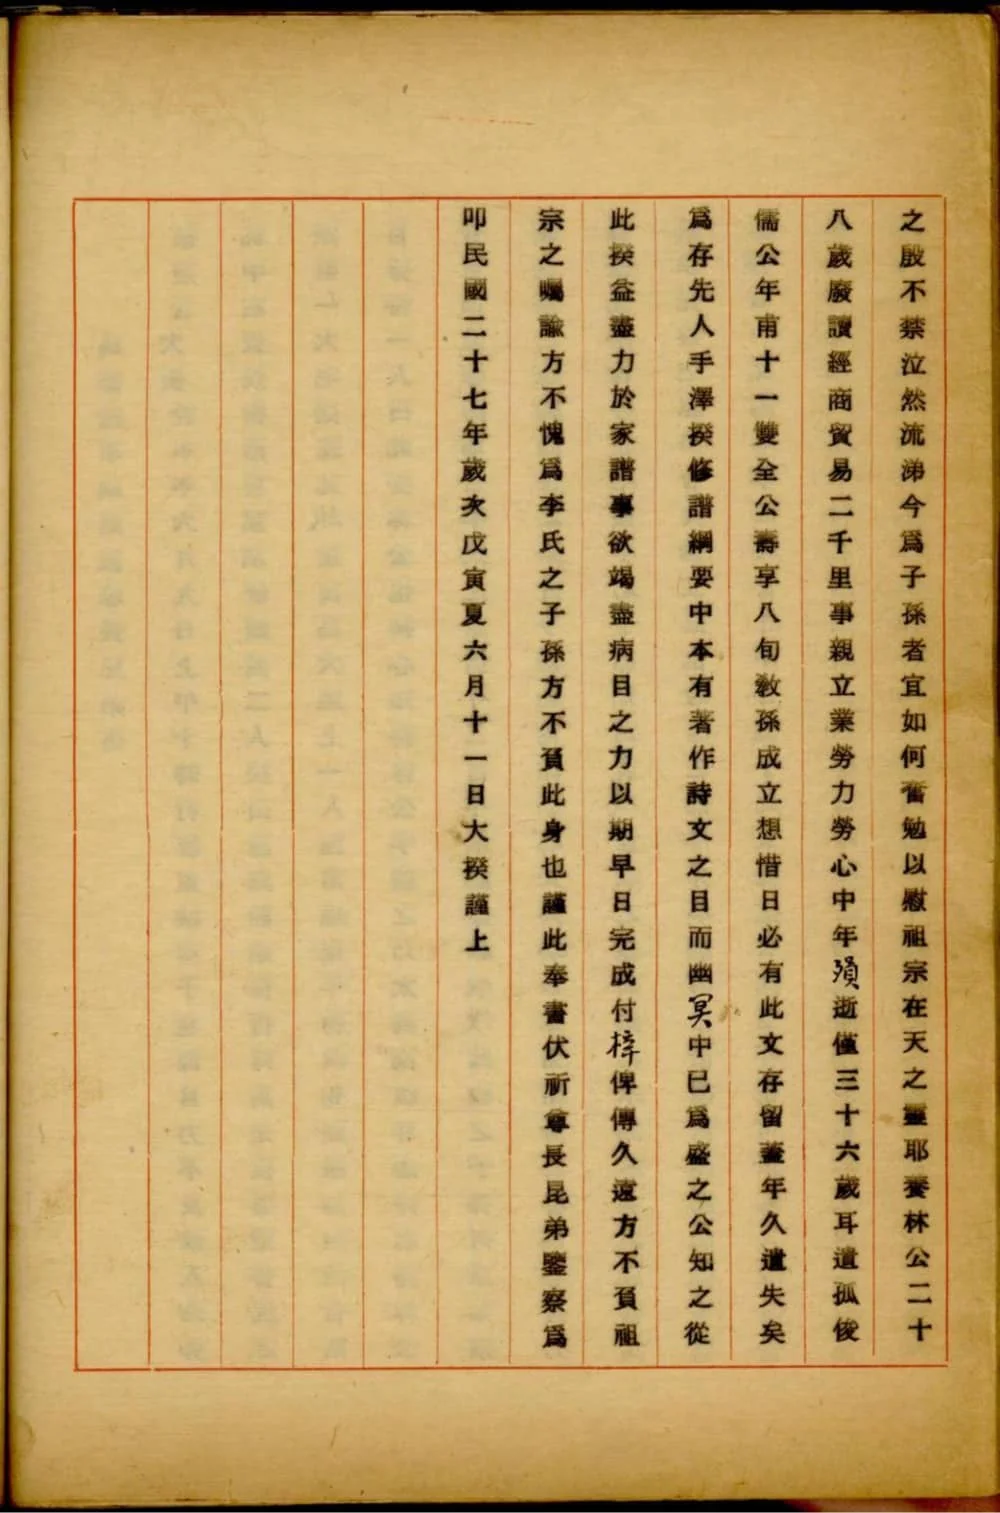 之殷不禁泣然流涕今爲子孫者宜如何奮勉以慰祖宗在天之靈耶養林公二十
八歲廢讀經商貿易二千里事親立業勞力勞心中年殞逝僅三十六歲耳遺孤俊
儒公年甫十一雙全公壽享八旬敎孫成立想惜日必有此文存留蓋年久遺失矣
爲存先人手澤揆修譜綱要中本有著作詩文之目而幽冥中已爲盛之公知之從
此揆益盡力於家譜事欲竭盡病目之力以期早日完成付梓俾傳久遠方不負祖
宗之囑諭方不愧爲李氏之子孫方不負此身也謹此奉書伏祈尊長昆弟鑒察爲
叩民國二十七年歲次戊寅夏六月十一日大揆謹上